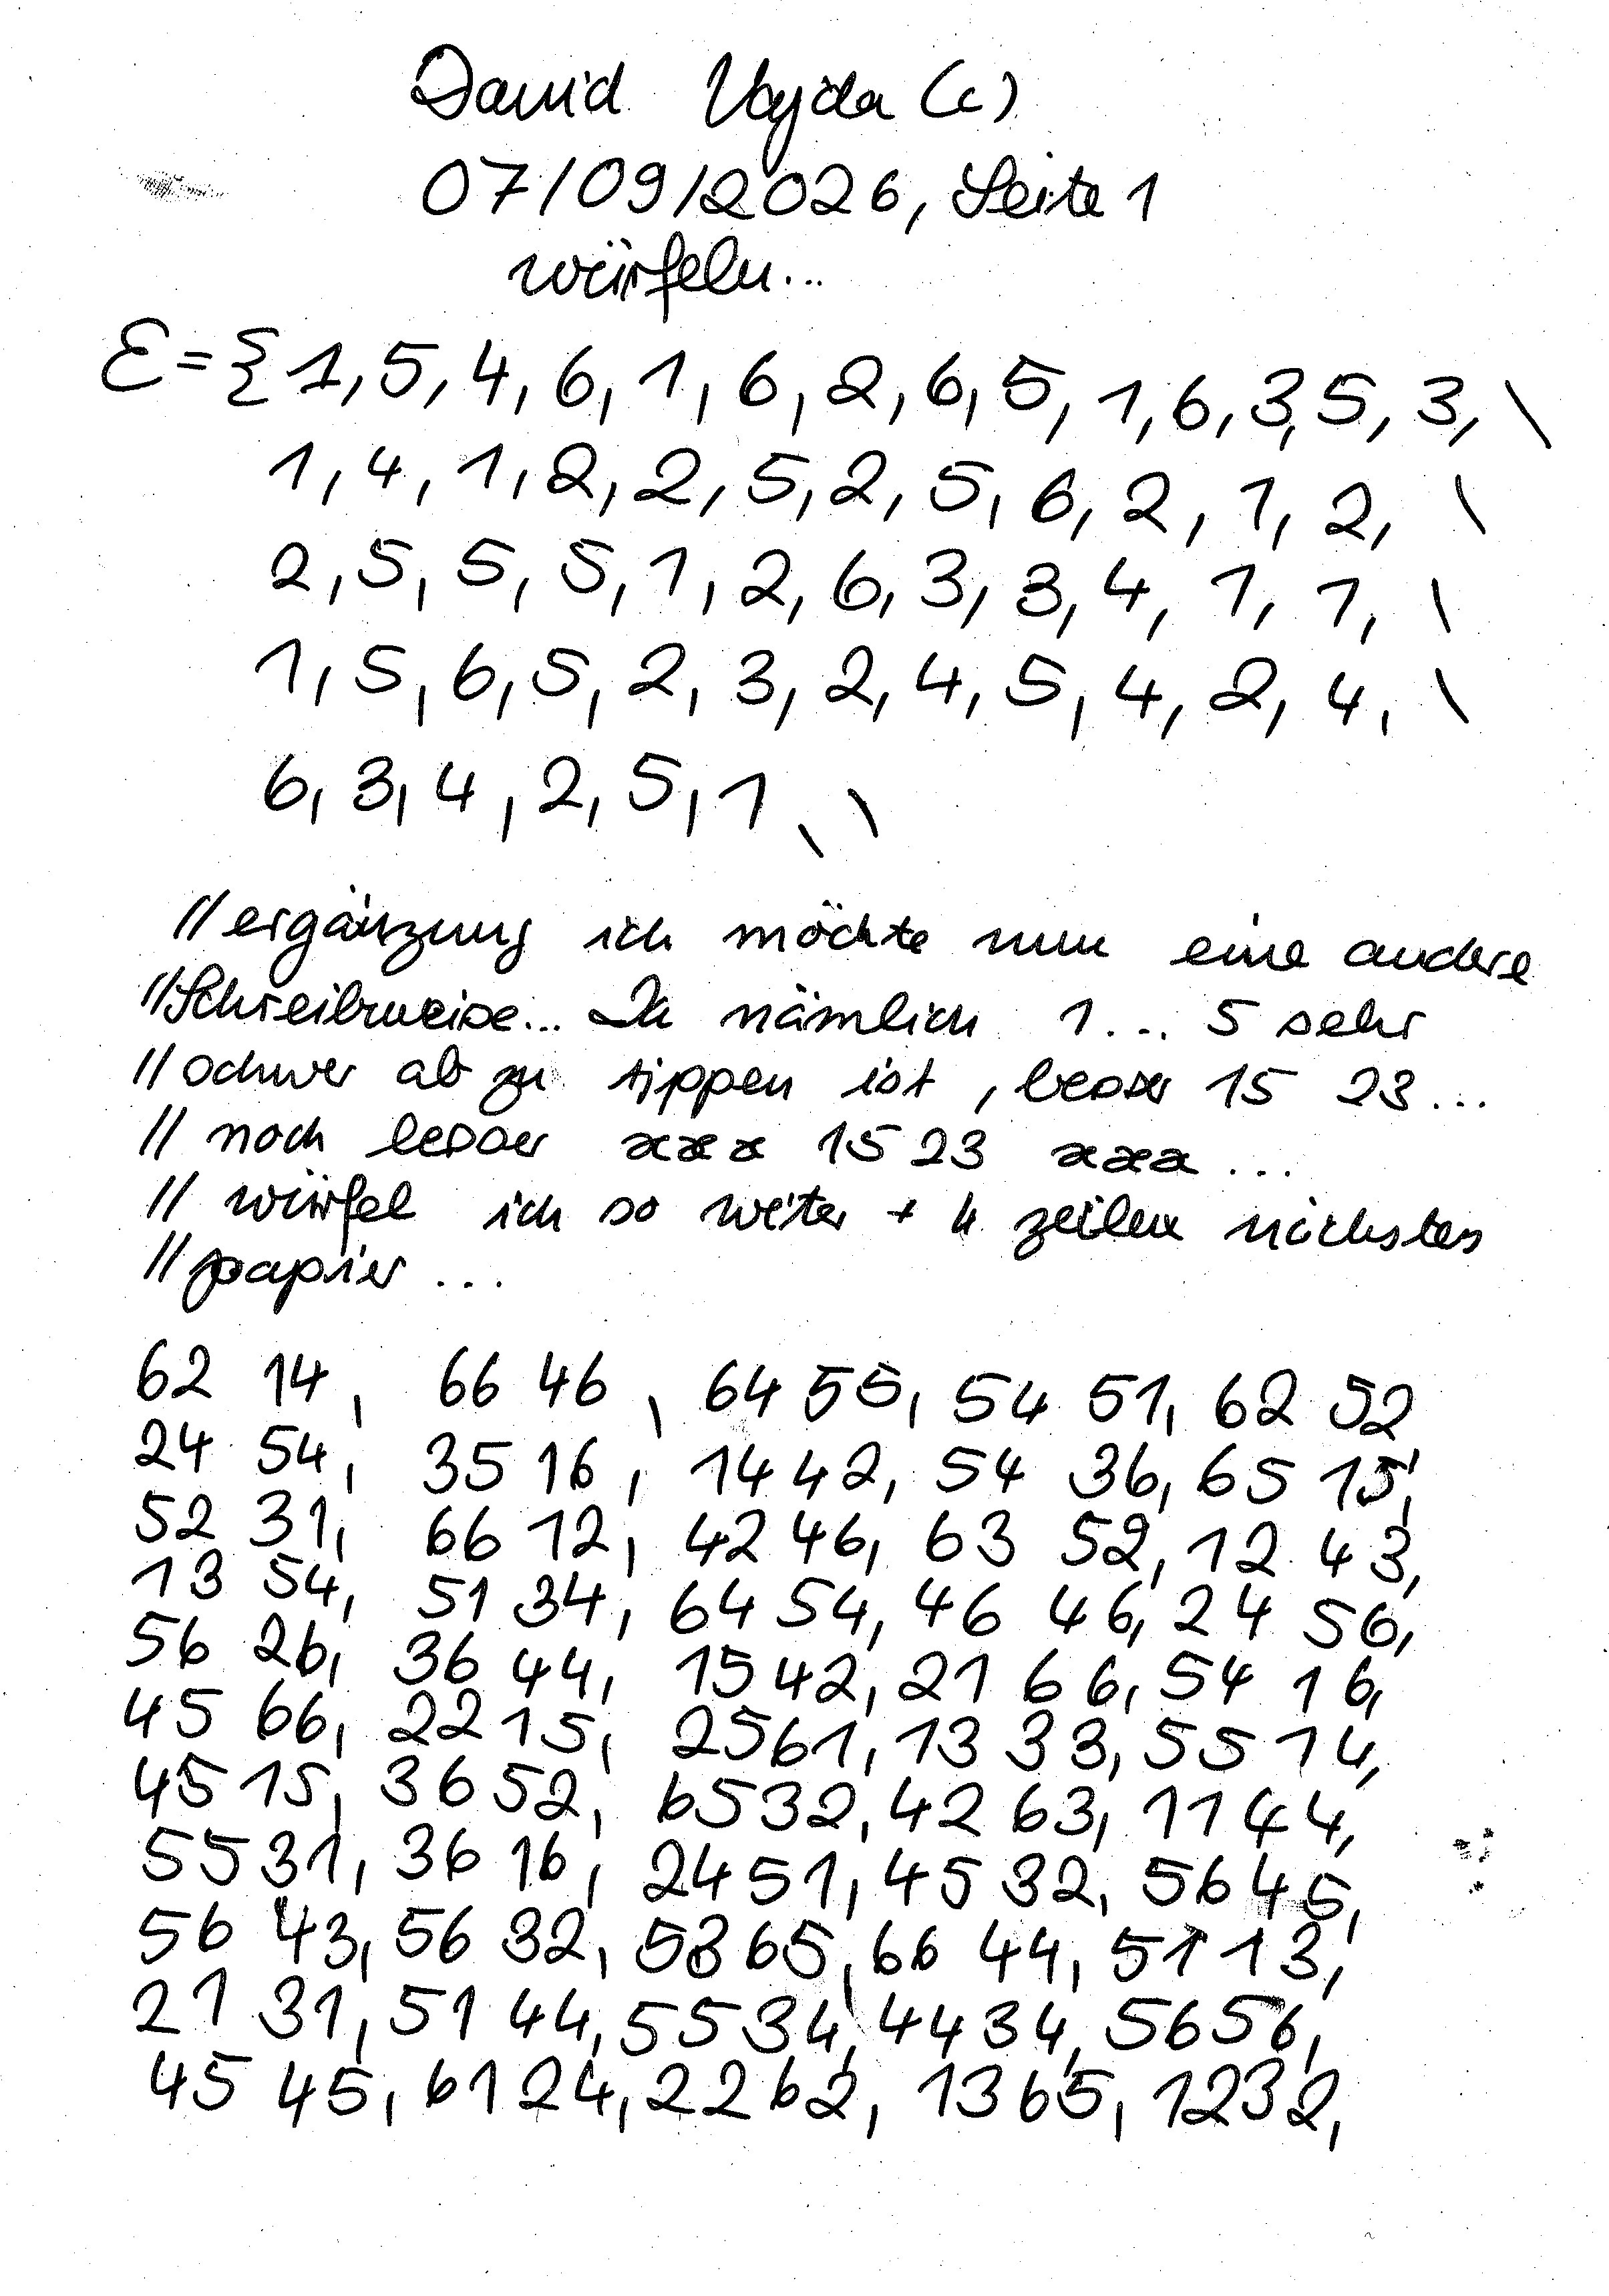 David Vajda (c)
07/09/2026, Seite 1
würfeln...
E={1,5,4,6,1,6,2,6,5,1,6,3,5,3,\
1,4,1,2,2,5,2,5,6,2,1,2, \
2,5,5,5,1,2,6,3,3,4,1,1, \
1,5,6,5,2,3,2,4,5,4,2,4, \
6,3,4,2,5,1 \ \
//ergänzung ich möchte nun eine andere
//Schreibweise... Da nämlich 1... 5 sehr
//schwer ab zu tippen ist, besser 15 23...
// noch besser xxx 15 23 xxx ...
// würfel ich so weiter + 4 zeilen nächstes
//papier ...
62 14, 66 46, 64 55, 54 51, 62 52
24 54, 35 16, 14 42, 54 36, 65 15,
52 31, 66 12, 42 46, 63 52, 12 43,
13 54, 51 34, 64 54, 46 46, 24 56,
56 26, 36 44, 15 42, 21 66, 54 16,
45 66, 22 15, 2561, 13 33, 55 14,
45 15, 36 52, 6532, 42 63, 11 44,
5531, 36 16, 2451, 45 32, 5645,
56 43, 56 32, 5365, 66 44, 51 13,
21 31, 51 44, 5534, 4434, 5656,
45 45, 6124, 2262, 1365, 1232,